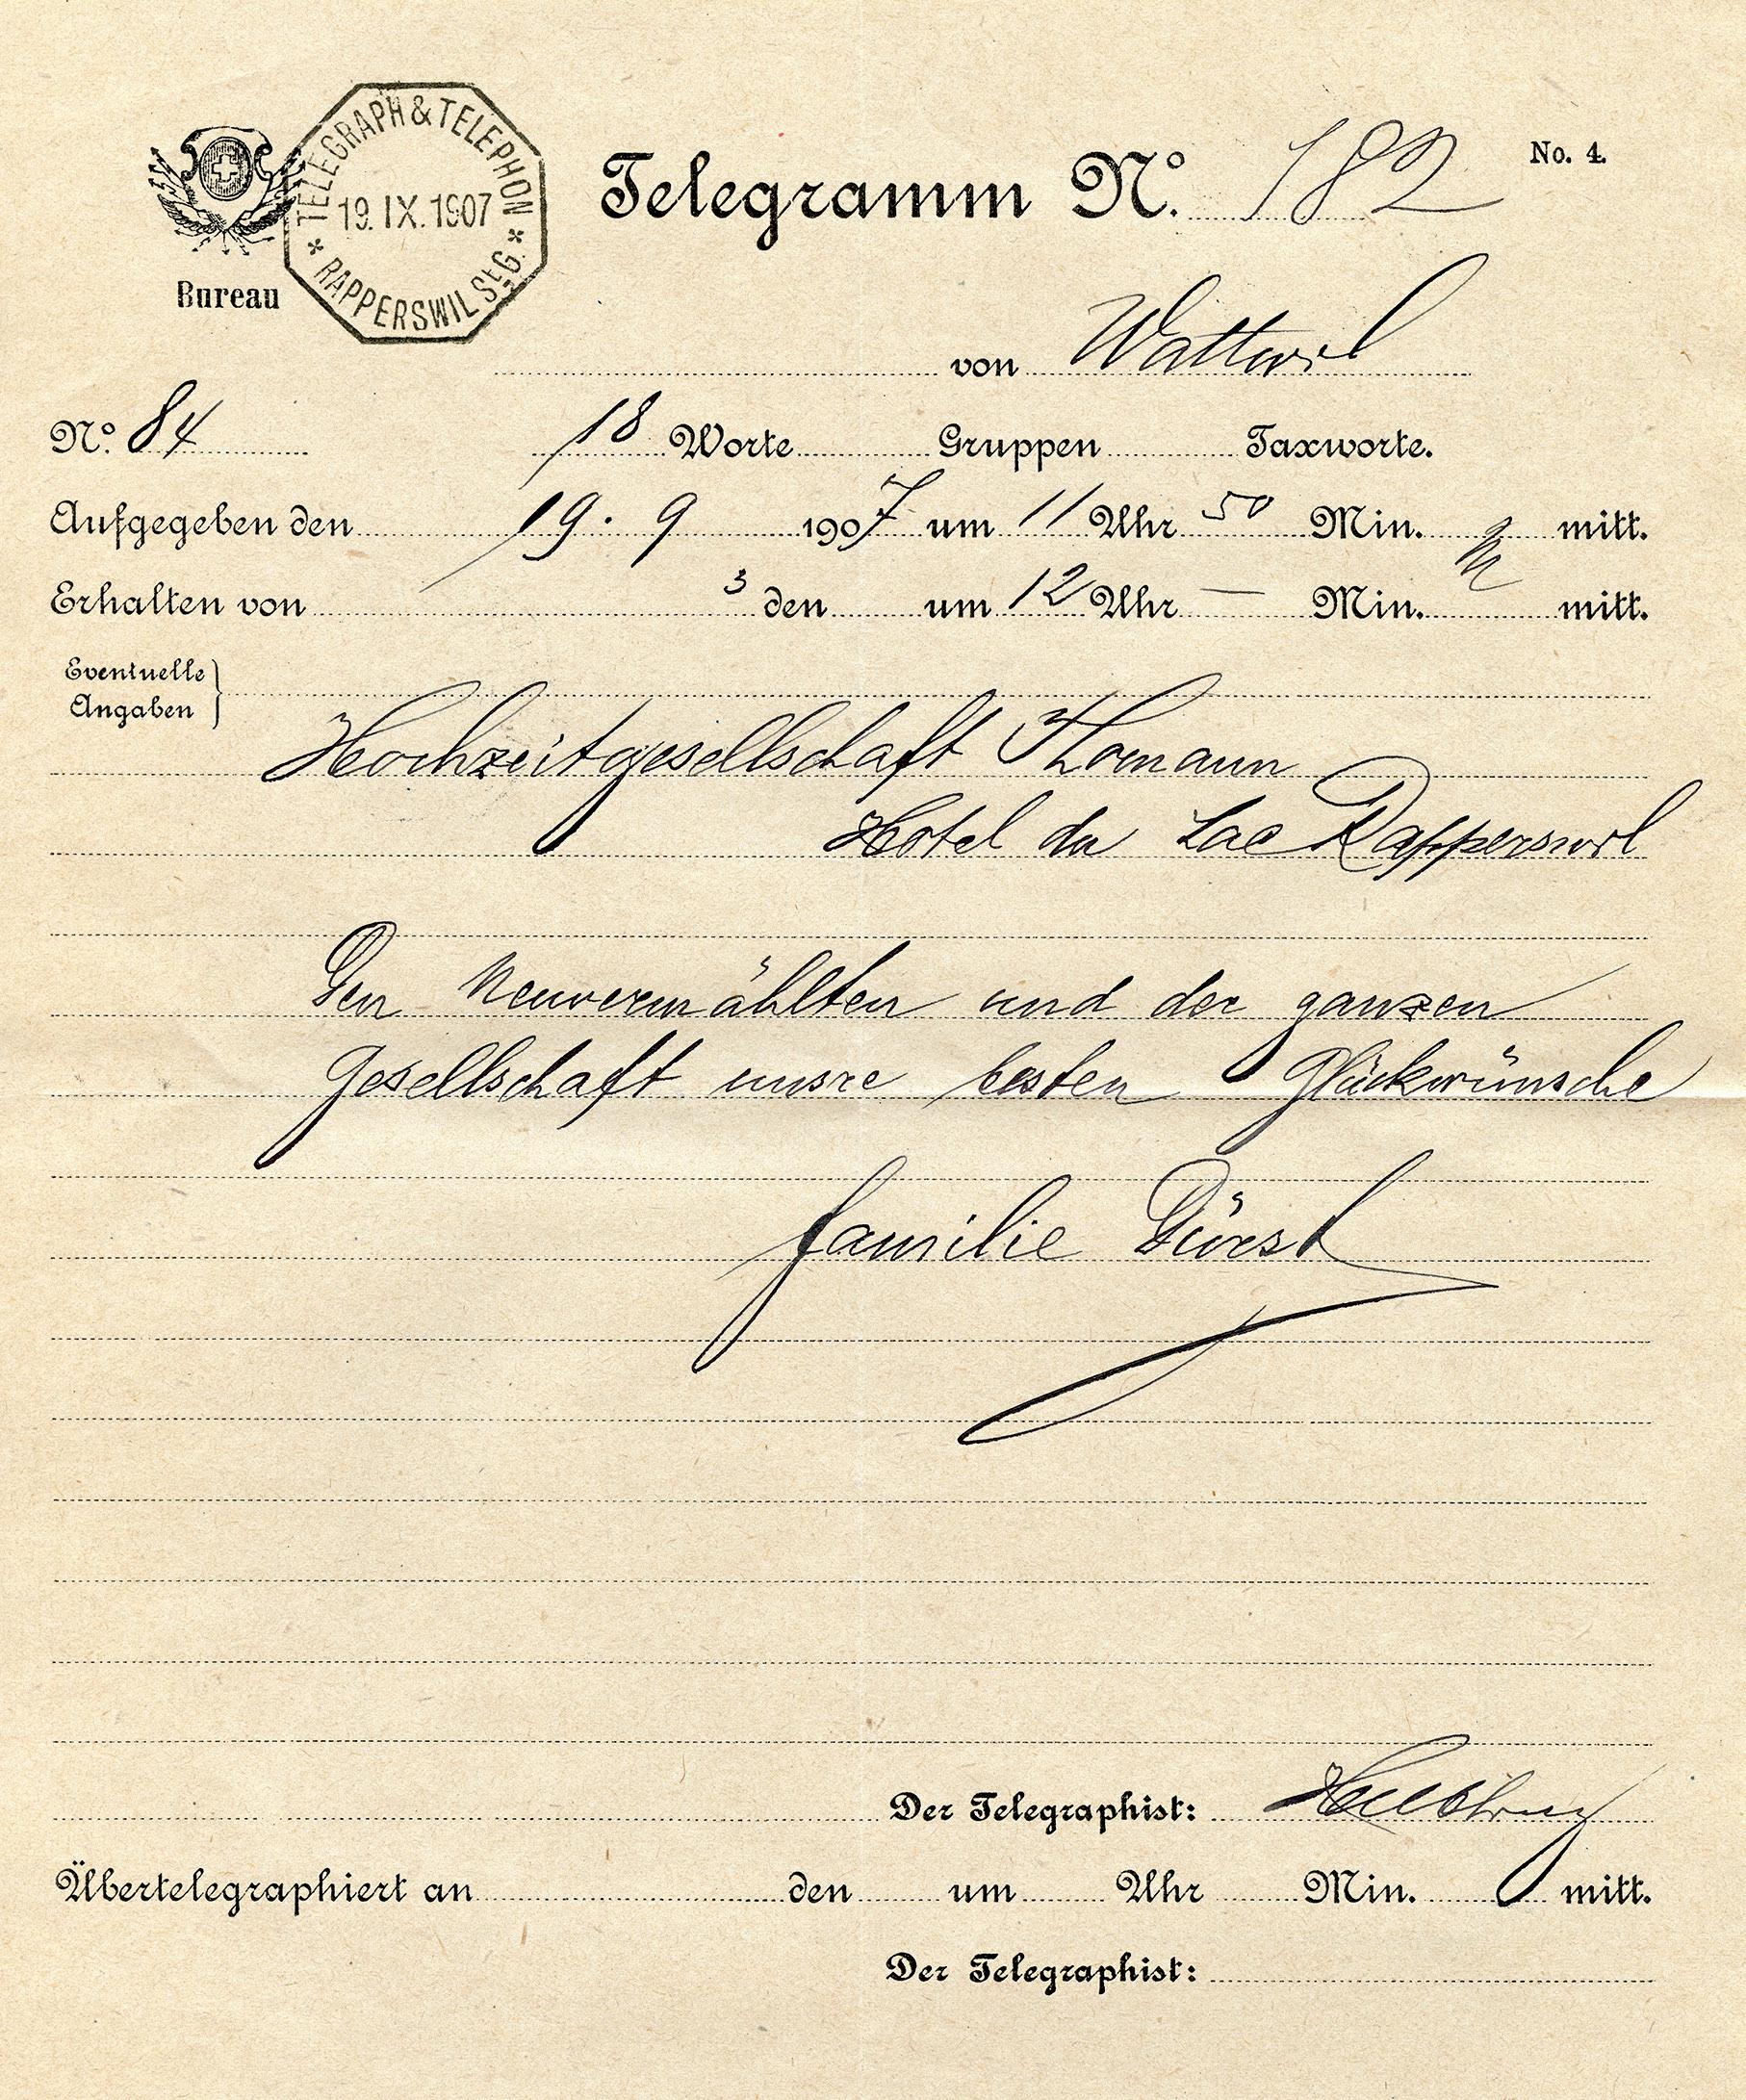 TELEGRAPH & TELEPHON
19. IX. 1907
* RAPPERSWIL St G. *
Telegramm No. 182 No. 4.
Bureau
von Wattwil
No. 84 18 Worte Gruppen Taxworte.
Aufgegeben den 19. 9 1907 um 11 Uhr 50 Min. mitt.
Erhalten von 3 den um 12 Uhr — Min. mitt.
Eventuelle
Angaben
Hochzeitgesellschaft Thomann
Hotel du Lac Rapperswil
Den Neuvermählten und der ganzen
Gesellschaft unsre besten Glückwünsche
Familie Dürst
Der Telegraphist:
Übertelegraphiert an den um Uhr Min. mitt.
Der Telegraphist: